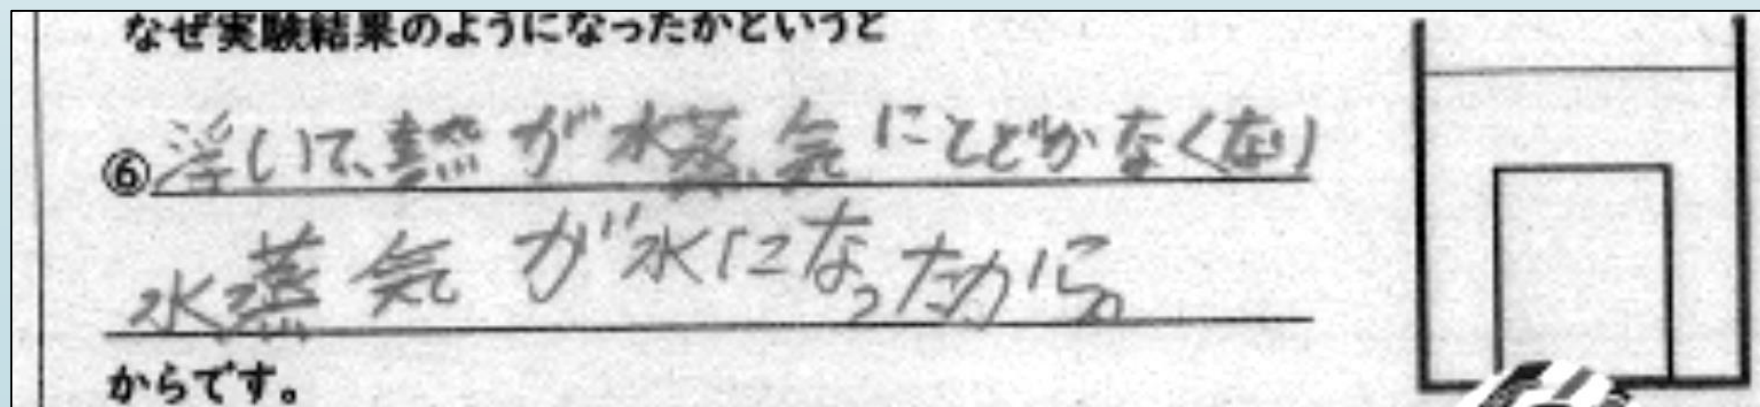 なぜ実験結果のようになったかというと
⑥浮して、熱が水蒸気にとどかなくなり
水蒸気が水になったから。
からです。